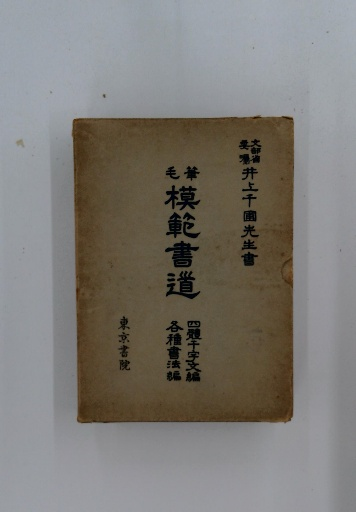 文部省
委嘱
井上千圃先生書
毛筆
模範書道
四體千字文編
各種書法編
東京書院